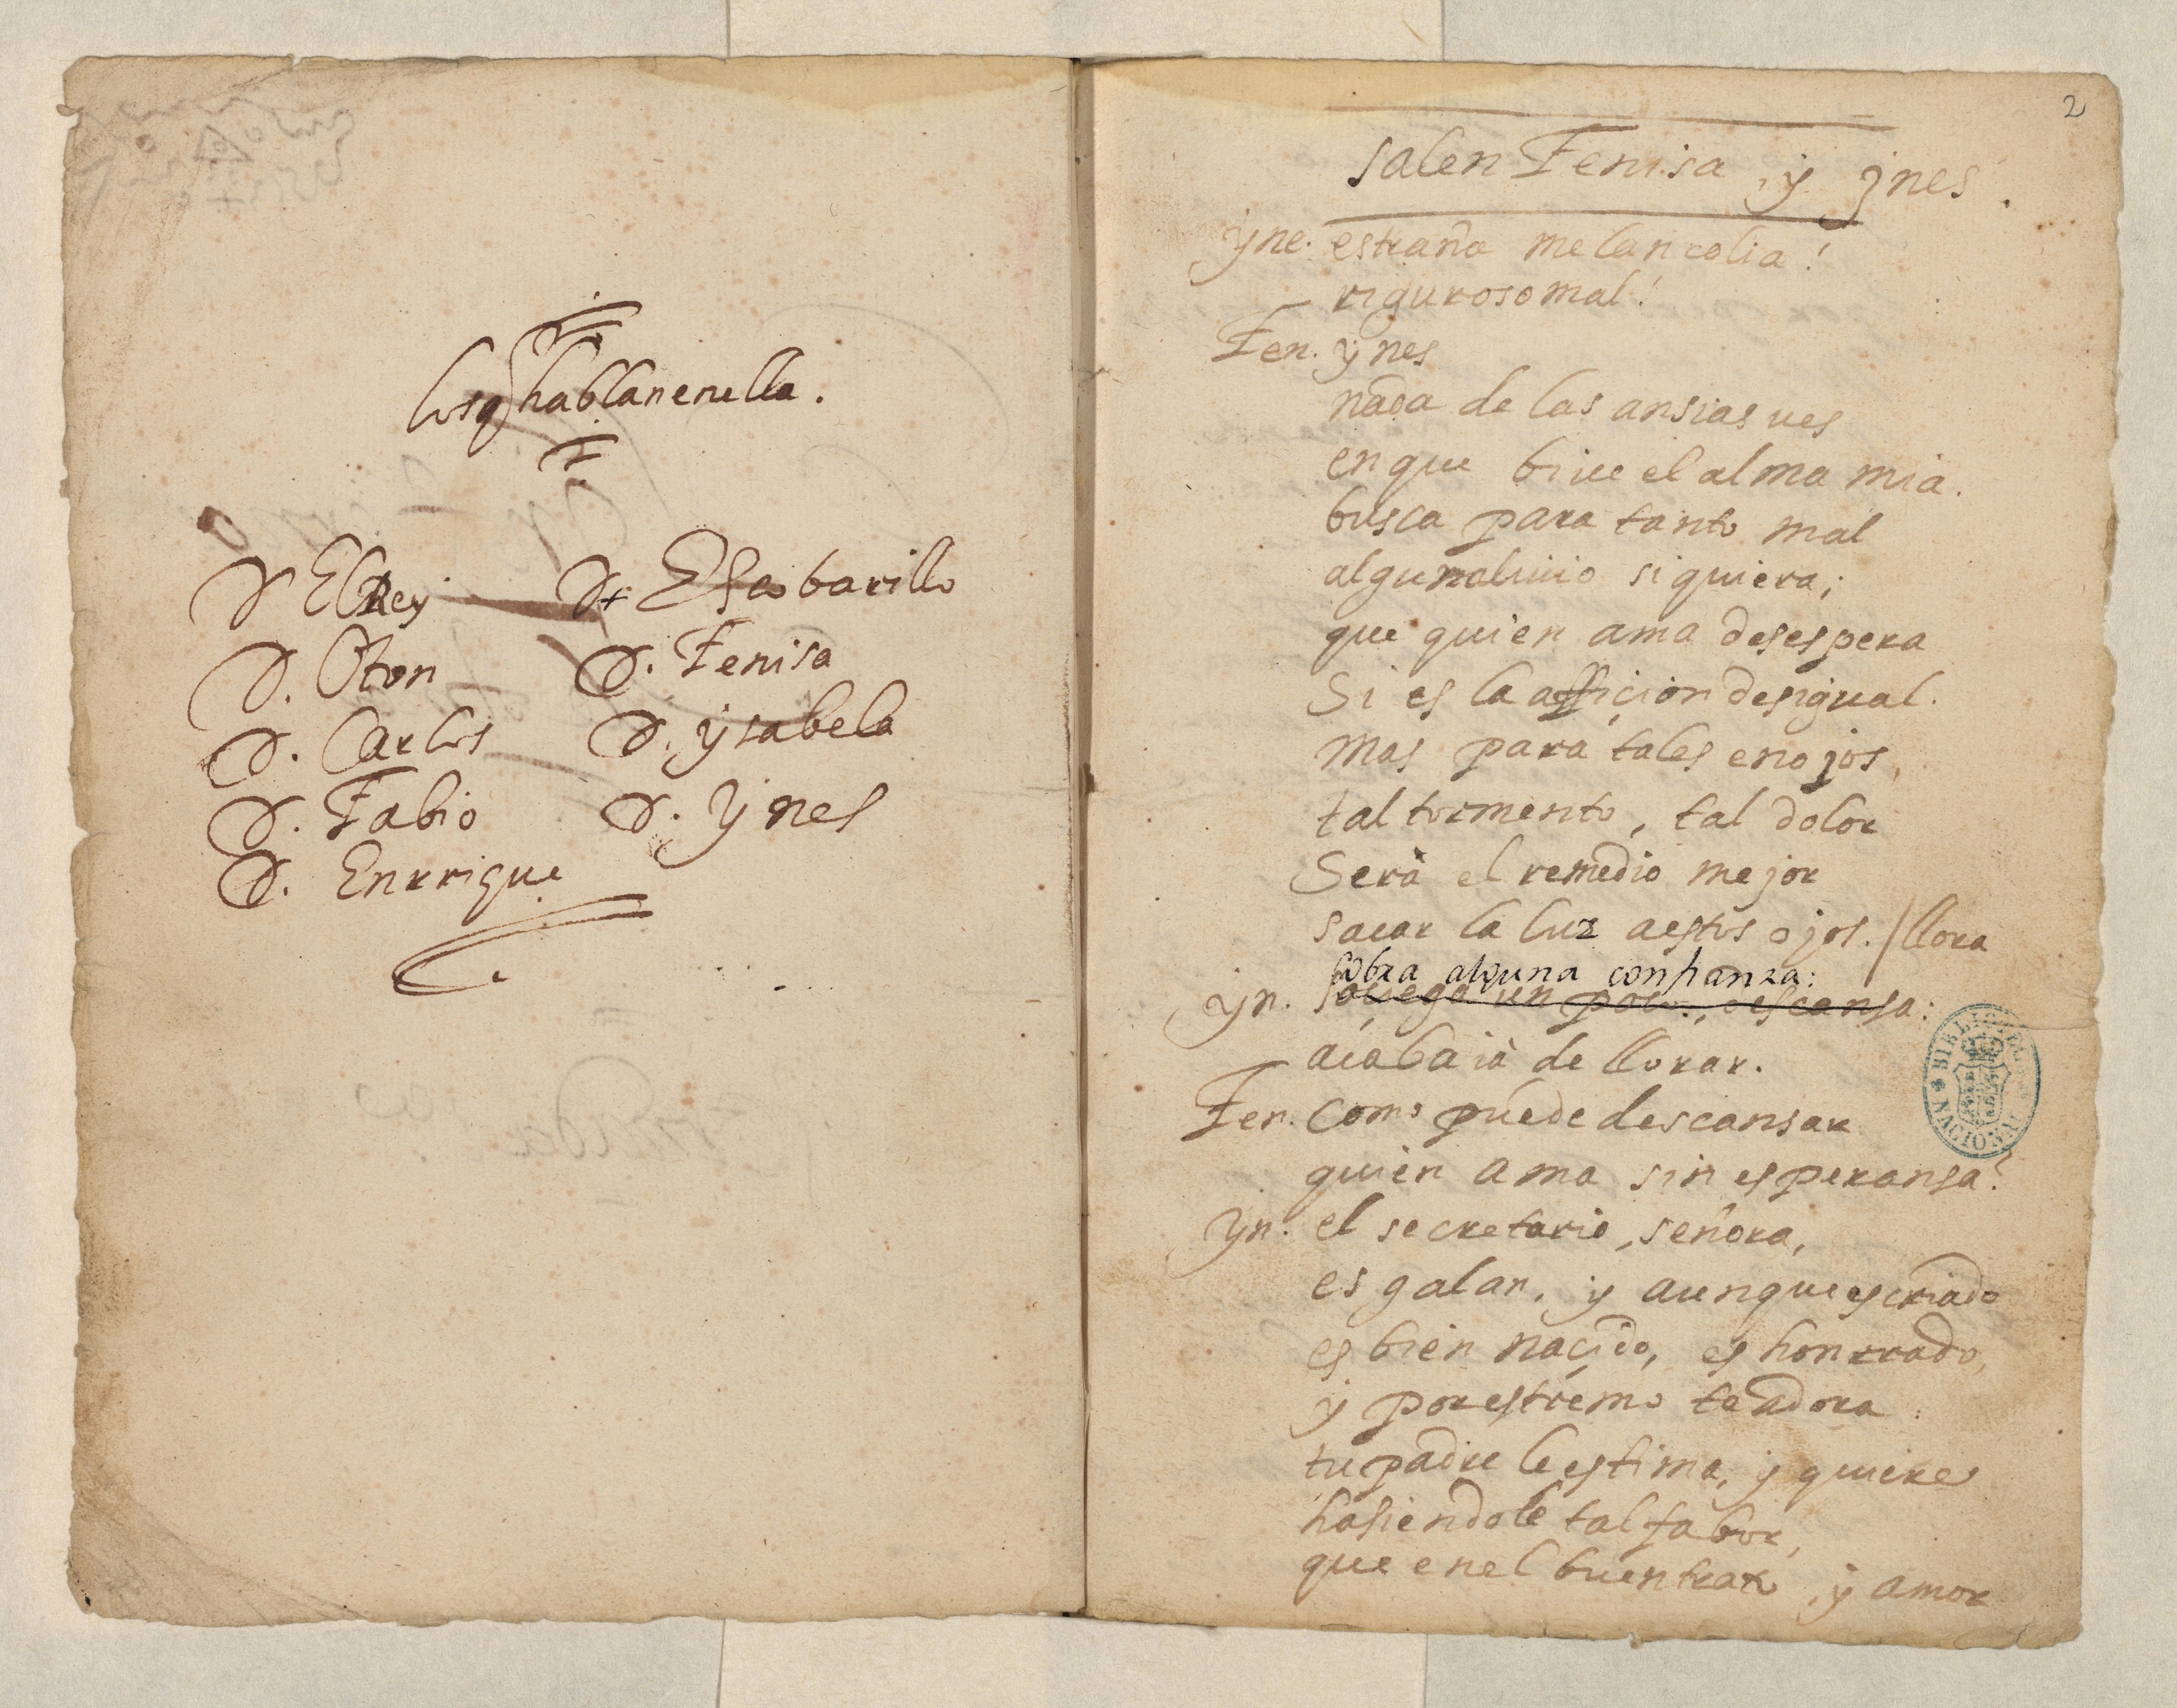 los q hablan en ella.
El Rey
Oton
Carlos
Fabio
Enrrique
Escobarillo
Fenisa
ysabela
ynes
2
salen Fenisa, y ynes.
yne. estraña melancolia!
riguroso mal!
Fen. ynes
nada de las ansias ves
en que biue el alma mia.
busca para tanto mal
algun aliuio siquiera;
que quien ama desespera
si es la afficion desigual.
mas para tales enojos,
tal tormento, tal dolor
Serà el remedio mejor
sacar la luz a estos ojos. / llora
cobra alguna confianza:
yn. sosiega un poco, descansa:
acaba ia de llorar.
Fen. como puede descansar
quien ama sin esperansa?
yn. el secretario, señora,
es galan, y aunque es criado
es bien naçido, es honrrado,
y por estremo te adora
tu padre le estima, y quiere
hasiendole tal fabor,
que en el buen trato, y amor
BIBLIOTECA NACIONAL